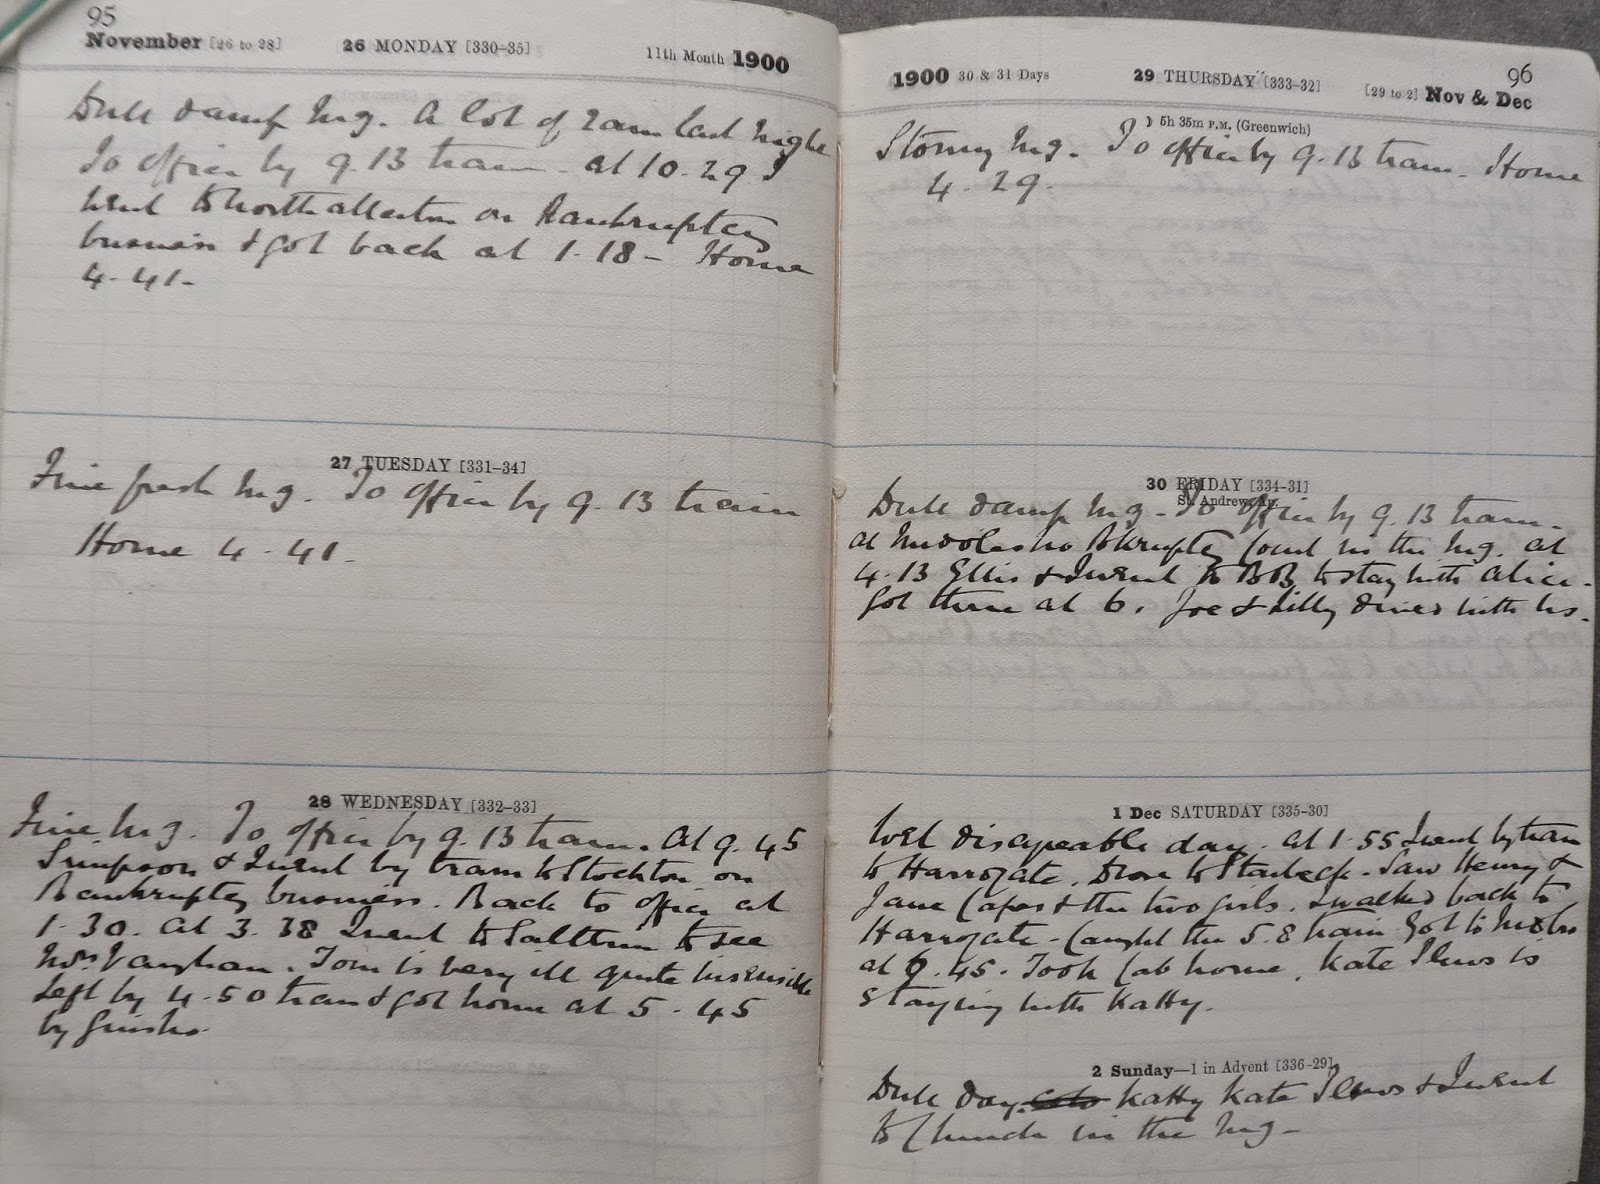 95
November [26 to 28] 26 MONDAY [330-35] 11th Month 1900
Dull damp Mg. A lot of rain last night
To office by 9.13 train. at 10.29 I
went to Northallerton on Bankruptcy
business & got back at 1.18 - Home
4.41.
27 TUESDAY [331-34]
Fine fresh Mg. To office by 9.13 train
Home 4.41.
28 WEDNESDAY [332-33]
Fine Mg. To office by 9.13 train. At 9.45
Simpson & I went by tram to Stockton on
Bankruptcy business. Back to office at
1.30. At 3.38 I went to Saltburn to see
Mrs Vaughan. Tom is very ill quite insensible
Left by 4.50 train & got home at 5.45
by
96
1900 30 & 31 Days 29 THURSDAY [333-32] [29 to 2] Nov & Dec
☽ 5h 35m P.M. (Greenwich)
Stormy Mg. To office by 9.13 train. Home
4.29.
30 FRIDAY [334-31]
St. Andrew.
Dull damp Mg. To office by 9.13 train.
At Middlesbro Bkruptcy Court in the Mg. At
4.13 Ellis & I went to BB to stay with Alice.
Got there at 6. Joe & Lilly dined with us.
1 Dec SATURDAY [335-30]
Wet disagreeable day. At 1.55 I went by train
to Harrogate. Drove to Starbeck. Saw Henry &
Jane Capes & the two girls. I walked back to
Harrogate - Caught the 5.8 train Got to Mdbro
at .45. Took Cab home. Kate is
staying with Katty.
2 Sunday—1 in Advent [336-29]
Dull day. Katty Kate & I went
to Church in the Mg -